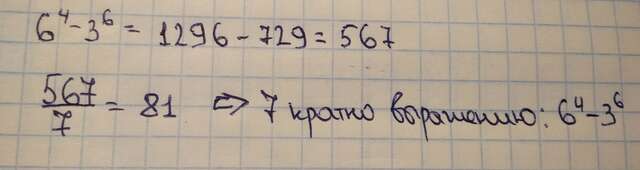 6⁴-3⁶ = 1296-729 = 567
567/7 = 81 ⇒ 7 кратно выражению: 6⁴-3⁶